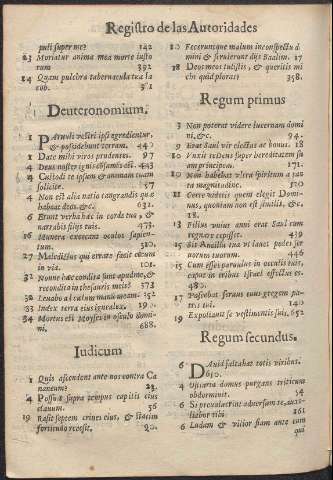 Registro de las Autoridades
puli super me? 142
23 Moriatur anima mea morte iusto
rum 392
24 Quam pulchra tabernacula tua Ia
cob. 361
Deuteronomium.
1 Paruuli vestri ipsi egredientur,
& possidebunt terram. 440
1 Date mihi viros prudentes. 97
4 Deus noster ignis 443
4 Custodi te ipsum & animam tuam
solicite. 97
4 Non est alia natio tam grandis quæ
habeat deos, &c. 631.
6 Erunt verba hæc in corde tuo, &
narrabis filijs tuis. 473.
16 Munera excæcant oculos sapien-
tum. 320.
27 Maledictus qui errare facit cæcum
in via. 101.
32 Nonne hæc condita sunt apud me, &
recondita in thesauris meis? 573
32 Leuabo ad cælum manū meam. 352
33 Index terra eius ignea lex. 10
34 Mortuus est Moyses in osculo domi-
ni, 688.
Iudicum
1 Quis ascendent ante nos contra Ca
naneum? 23.
4 Possuit supra tempus capitis eius
clauum. 56
19 Rasit septem crines eius, & statim
fortitudo recessit. 20.
10 Feceruntque malum in conspectu do
mini & seruierunt dijs Baalim. 17
18 Deos meos tulistis, & queritis mi
chi quid plorat? 358.
Regum primus
3 Non poterat videre lucernam domi
ni, &c. 94.
9 Erat Saul vir electus ac bonus. 18
10 Vnxit te Deus super hereditatem su
am principem. 171.
10 Non habebat vltra spiritum
magnitudine. 170
11 Cerne videtis quem elegit Domi-
nus, quoniam non est similis, &c.
18.
13 Filius vnius anni erat Saul cum
regnare cepisset. 439
25 Sit Ancilla tua vt lauet pedes ser
uorum tuorum. 446
15 Cum esses paruulus in oculis tuis,
caput in tribus Israel effectus es.
480.
17 Pascebat seruus tuus gregem pa-
tris tui. 140
19 Expoliauit se vestimentis suis, 652
Regum secundus.
6 Dauid saltabat totis viribus.
650.
4 Ostiaria domus purgans triticum
obdormiuit. 54
6 Si præualuerint aduersum te, auxi-
liabor tibi 161
6 Ludam & vilior fiam ante eum
qui